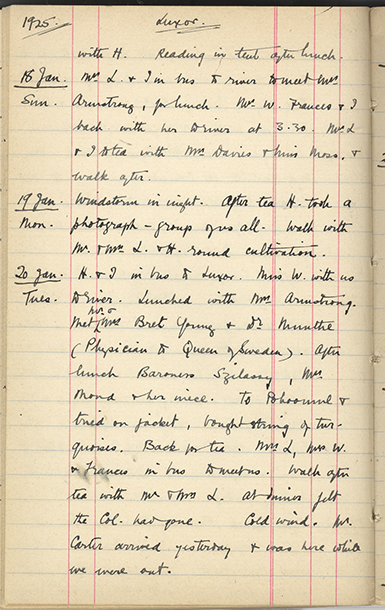 1925. Luxor.
with H. Reading in tent after lunch.
18 Jan. Mrs L. & I in bus to river to meet Mrs
Sun. Armstrong, for lunch. Mr. W. Frances & I
back with her to river at 3.30. Mrs L
& I to tea with Mrs Davies & Miss Moss. &
walk after.
19 Jan. Windstorm in night. After tea H. took a
Mon. photograph – group of us all. Walk with
Mr. & Mrs L. & H. round cultivation.
20 Jan. H. & I in bus to Luxor. Miss W. with us
Tues. to river. Lunched with Mrs Armstrong.
Met Mr & Mrs Bret Young & Dr Munthe
(Physician to Queen of Sweden). After
lunch Baroness Szilassy, Mrs.
Mond & her niece. To &
tried on jacket, bought string of tur-
quoises. Back for tea. Mrs L, Mrs W.
& Frances in bus to meet us. Walk after
tea with Mr & Mrs L. At dinner felt
the Col. had gone. Cold wind. Mr.
Carter arrived yesterday & was here while
we were out.